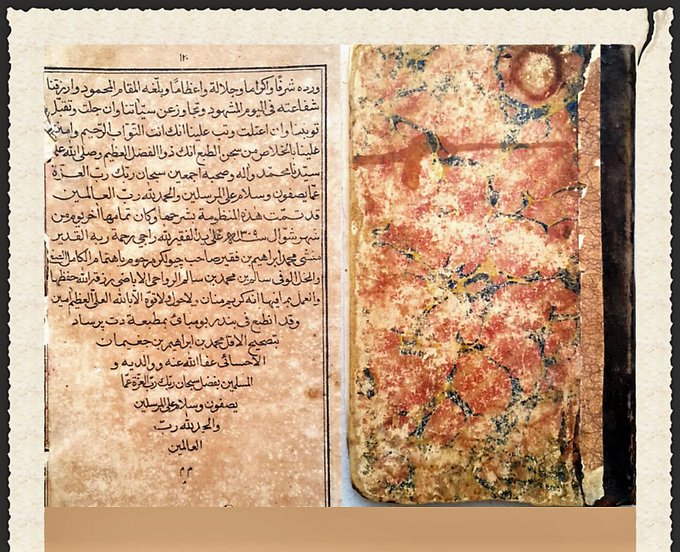 ١٢٠
وزده شرفًا وكرامًا وجلالة واعظامًا وبلغه المقام المحمود وارزقنا
شفاعته في اليوم المشهود وتجاوز عن سيآتنا وان جلت وتقبل
توبتنا وان اعتلت وتب علينا انك انت التواب الرحيم وامنن
علينا بالخلاص من سجن الطبع انك ذو الفضل العظيم وصلى الله على
سيدنا محمد وآله وصحبه اجمعين سبحان ربك رب العزة
عما يصفون وسلام على المرسلين والحمد لله رب العالمين
قد تمت هذه المنظومة بشرحها وكان تمامها آخر يوم من
شهر شوال ١٣٠٩ على يد الفقير لله راجي رحمة ربه القدير
منشي محمد ابراهيم بن فقير صاحب جونكر مرحوم باهتمام الكامل
والخل الوفي سالم بن محمد بن سالم الرواحي الاباضي رزقه الله حفظها
والعمل بما فيها انه كريم منان ولا حول ولا قوة الا بالله العلي العظيم آمين
وقد انطبع في بندر بومباي بمطبعة دت پرساد
بتصحيح الاقل محمد بن ابراهيم بن جغيمان
الاحسائي عفا الله عنه ووالديه و
المسلمين بفضل سبحان ربك رب العزة عما
يصفون وسلام على المرسلين
والحمد لله رب
العالمين
م م